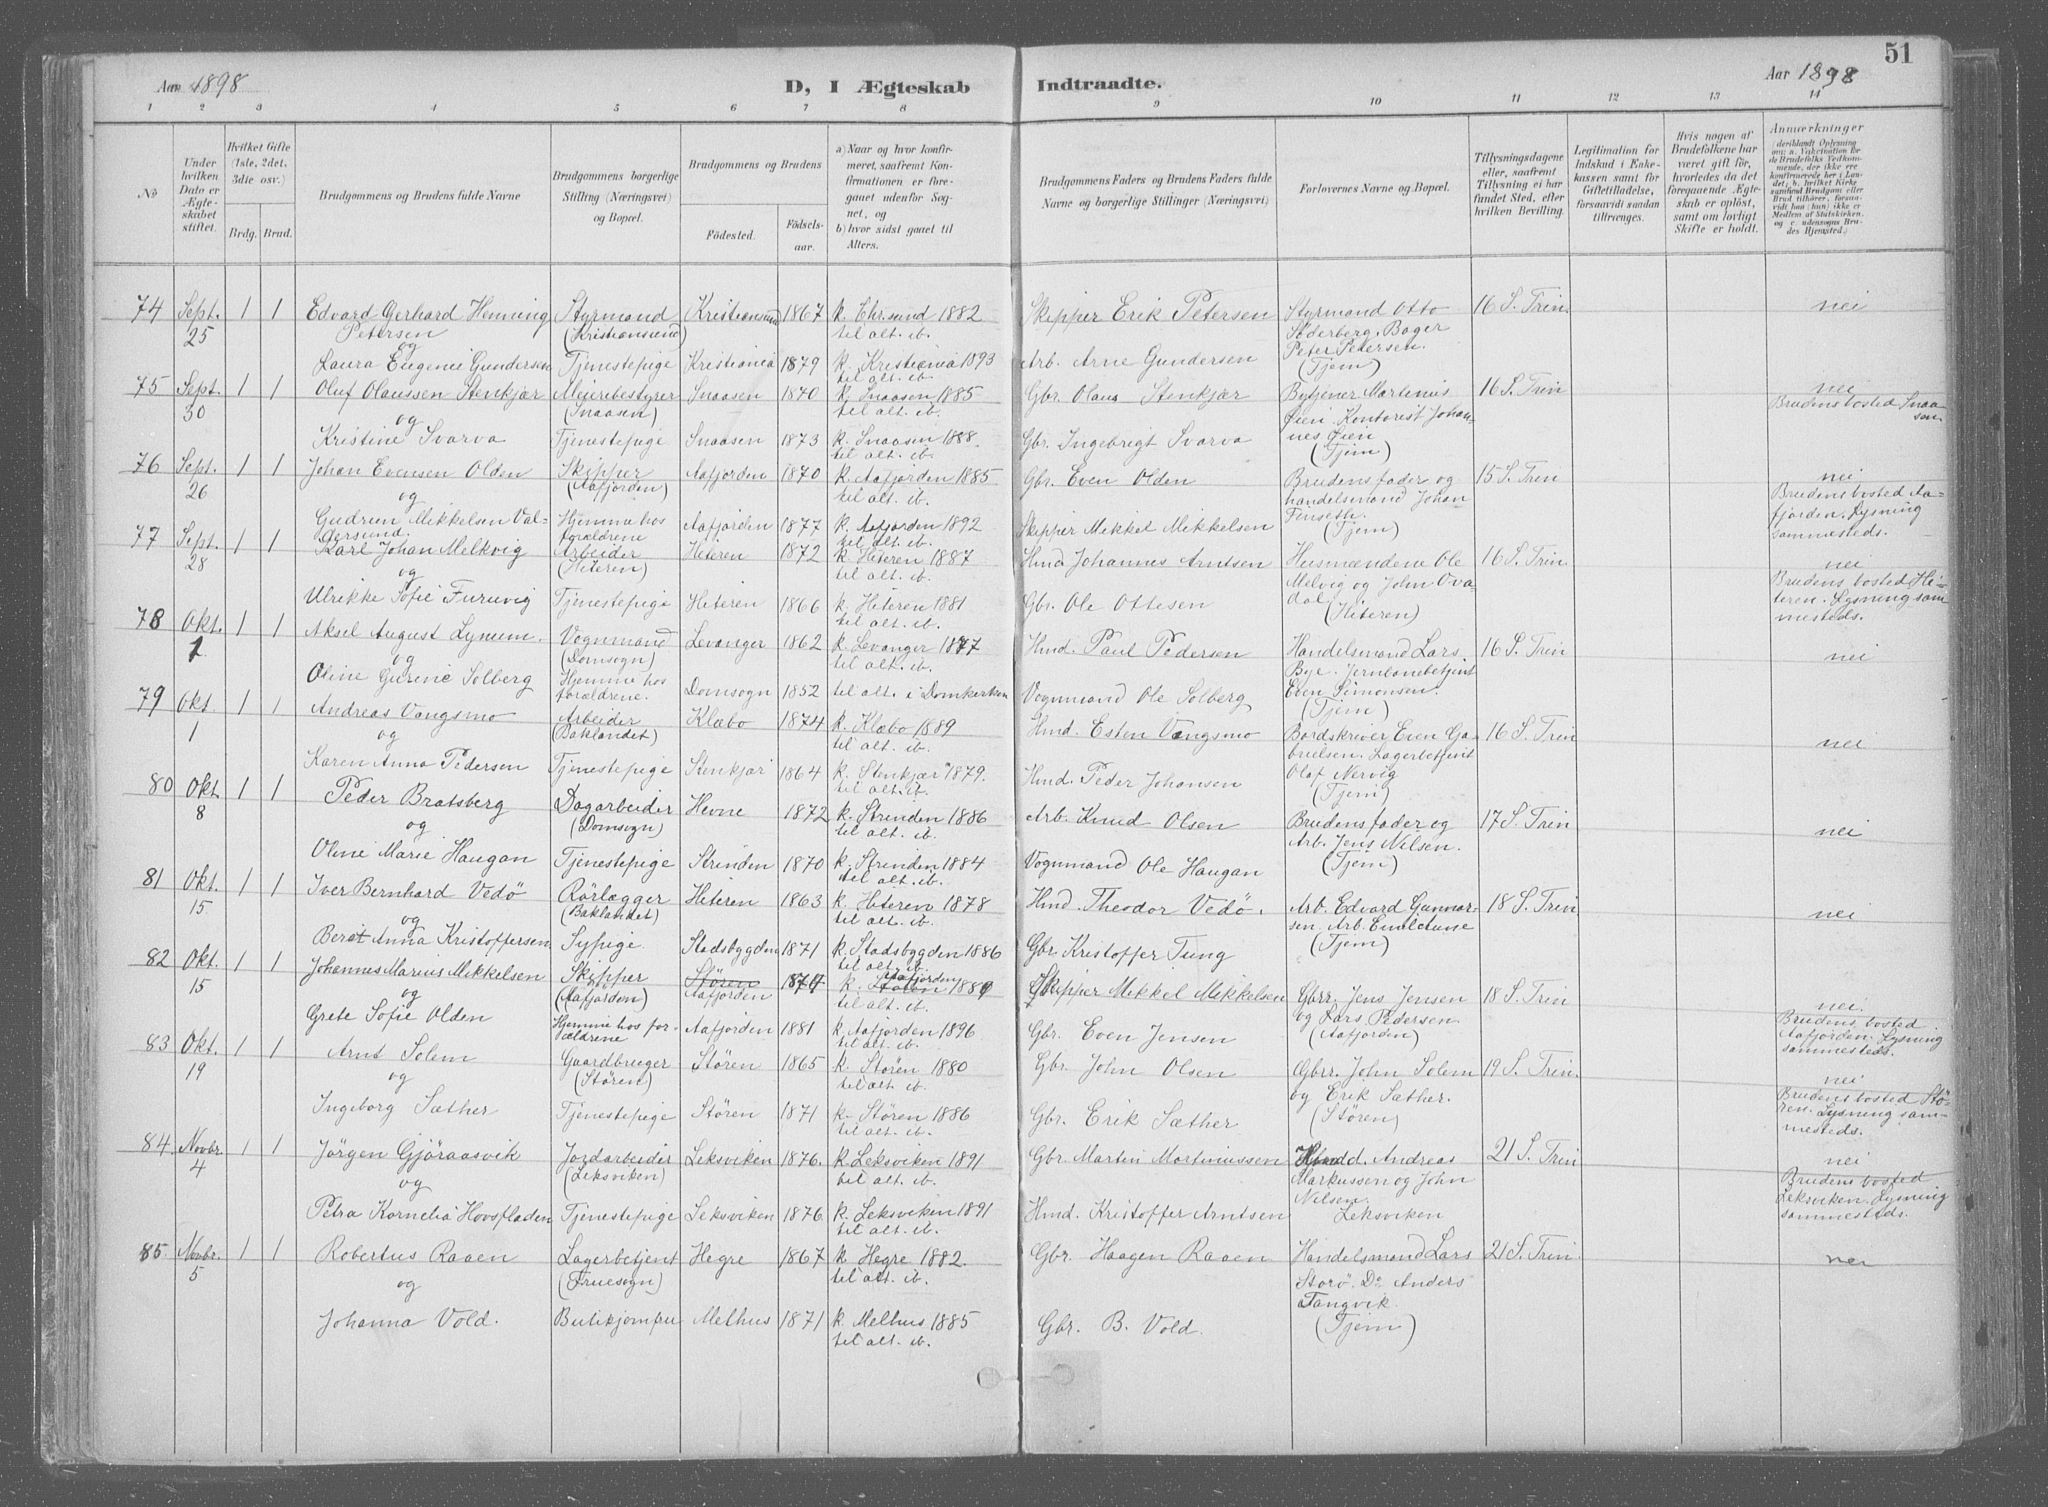 51
Aar 1898
D, I Ægteskab
Indtraadte.
Aar 1898
1 2 3 4 5 6 7 8 9 10 11 12 13 14
No
Under hvilken Dato er Ægteskabet stiftet.
Hvilket Gifte (1ste, 2det, 3die osv.)
Brdg. Brud.
Brudgommens og Brudens fulde Navne
Brudgommens borgerlige Stilling (Næringsvei) og Bopæl.
Brudgommens og Brudens
Fødested.
Fødselsaar.
a) Naar og hvor konfirmeret, saafremt Konfirmationen er foregaaet udenfor Sognet, og
b) hvor sidst gaaet til Alters.
Brudgommens Faders og Brudens Faders fulde Navne og borgerlige Stillinger (Næringsvei)
Forlovernes Navne og Bopæl.
Tillysningsdagene eller, saafremt Tillysning ei har fundet Sted, efter hvilken Bevilling.
Legitimation for Indskud i Enkekassen samt for Giftetilladelse, forsaavidt saadan tiltrænges.
Hvis nogen af Brudefolkene har været gift før, hvorledes da det foregaaende Ægteskab er opløst, samt om lovligt Skifte er holdt.
Anmærkninger
(deriblandt Oplysning om: a. Vakcination for de Brudefolks Vedkommende, der ikke ere konfirmerede her i Landet; b. hvilket Kirkesamfund Brudgom eller Brud tilhører, forsaavidt han (hun) ikke er Medlem af Statskirken, og c. udensogns Brudes Hjemsted.)
74 Sept. 25 1 1 Edvard Gerhard Henning Petersen Styrmand (Kristiansund) Kristiansund 1867 k. Chr.sund 1882 til alt. ib. Skipper Erik Petersen Styrmand Otto Söderberg, Bager Peter Petersen. (Tjem) 16 S. Trin. nei
og
Laura Eugenie Gundersen Tjenestepige Kristiania 1879 k. Kristiania 1893 til alt. ib. Arb. Arne Gundersen
75 Sept. 30 1 1 Oluf Olaussen Stenkjær Meieribestyrer (Snaasen) Snaasen 1870 k. Snaasen 1885 til alt. ib. Gbr. Olaus Stenkjær Bytjener Martenius Øien, Kontorist Johannes Øien (Tjem) 16 S. Trin nei
Brudens bosted Snaasen
og
Kristine Svarva Tjenestepige Snaasen 1873 k. Snaasen 1888. til alt. ib. Gbr. Ingebrigt Svarva
76 Sept. 26 1 1 Johan Evensen Olden Skipper (Aafjorden) Aafjorden 1870 k. Aafjorden 1885 til alt. ib. Gbr. Even Olden Brudens fader og handelsmand Johan Finseth. (Tjem) 15 S. Trin nei
Brudens bosted Aafjorden. Lysning sammesteds.
og
Gudrun Mikkelsen Valdersund. Hjemme hos forældrene Aafjorden 1877 k. Aafjorden 1892 til alt. ib. Skipper Mikkel Mikkelsen
77 Sept. 28 1 1 Karl Johan Melkvig Arbeider (Hiteren) Hiteren 1872 k. Hiteren 1887 til alt. ib. Hmd. Johannes Arntsen Husmændene Ole Melvig og John Ovadal (Hiteren) 16 S. Trin. nei
Brudens bosted Hiteren. Lysning sammesteds.
og
Ulrikke Sofie Furuvig Tjenestepige Hiteren 1866 k. Hiteren 1881 til alt. ib. Gbr. Ole Ottesen
78 Okt. 1 1 1 Aksel August Lynum. Vognmand (Domsogn) Levanger 1862 k. Levanger 1877 til alt. ib. Hmd. Paul Pedersen Handelsmand Lars Bye. Jernbanebetjent Even Simonsen. (Tjem) 16 S. Trin nei
og
Oline Gurine Solberg Hjemme hos forældrene. Domsogn 1852 til alt. i Domkirken Vognmand Ole Solberg
79 Okt. 1 1 1 Andreas Vangsmo Arbeider (Baklandet) Klæbo 1874 k. Klæbo 1889 til alt. ib. Hmd. Esten Vangsmo Bordskriver Even Gabrielsen. Lagerbetjent Olaf Nervig (Tjem) 16 S. Trin nei
og
Karen Anna Pedersen Tjenestepige Stenkjær 1864 k. Stenkjær 1879. til alt. ib. Hmd. Peder Johansen
80 Okt. 8 1 1 Peder Bratsberg Dagarbeider (Domsogn) Hevne 1872 k. Strinden 1886 til alt. ib. Arb. Knud Olsen Brudens fader og Arb. Jens Nilsen. (Tjem) 17 S. Trin nei
og
Oline Marie Haugan Tjenestepige Strinden 1870 k. Strinden 1884 til alt. ib. Vognmand Ole Haugan
81 Okt. 15 1 1 Iver Bernhard Vedö Rörlægger (Baklandet) Hiteren 1863 k. Hiteren 1878 til alt. ib. Hmd. Theodor Vedö. Arb. Edvard Gunnarsen. Arb. Emil (Tjem) 18 S. Trin nei
og
Beret Anna Kristoffersen Sypige. Stadsbygden 1871 k. Stadsbygden 1886 til alt. ib. Gbr. Kristoffer Tung
82 Okt. 15 1 1 Johannes Marius Mikkelsen Skipper (Aafjorden) Stören Aafjorden k. Stören Aafjorden til alt. ib. Skipper Mikkel Mikkelsen Gbrr. Jens Jensen og Lars Pedersen (Aafjorden) 18 S. Trin nei
Brudens bosted Aafjorden. Lysning sammesteds.
og
Grete Sofie Olden Hjemme hos forældrene Aafjorden 1881 k. Aafjorden 1896 til alt. ib. Gbr. Even Jensen
83 Okt. 19 1 1 Arnt Solem Gaardbruger (Stören) Stören 1865 k. Stören 1880 til alt. ib. Gbr. John Olsen Gbrr. John Solem og Erik Sæther. (Stören) 19 S. Trin. nei
Brudens bosted Stören. Lysning sammesteds.
og
Ingeborg Sæther Tjenestepige Stören 1871 k. Stören 1886 til alt. ib. Gbr. Erik Sæther
84 Novbr. 4 1 1 Jörgen Gjöraasvik Jordarbeider (Leksviken) Leksviken 1876. k. Leksviken 1891 til alt. ib. Gbr. Martin Martinussen Andreas Markussen og John Nilsen. Leksviken 21 S. Trin nei
Brudens bosted Leksviken. Lysning sammesteds.
og
Petra Kornelia Hovsfladen Tjenestepige Leksviken 1876 k. Leksviken 1891 til alt. ib. Hmd. Kristoffer Arntsen
85 Novbr. 5 1 1 Robertus Raaen Lagerbetjent (Fruesogn) Hegre 1867 k Hegre 1882. til alt. ib. Gbr. Haagen Raaen Handelsmand Lars Storö. Do Anders Tangvik. (Tjem) 21 S. Trin. nei
og
Johanna Vold. Butikjomfru Melhus 1871 k. Melhus 1885 til alt. ib. Gbr. B. Vold.